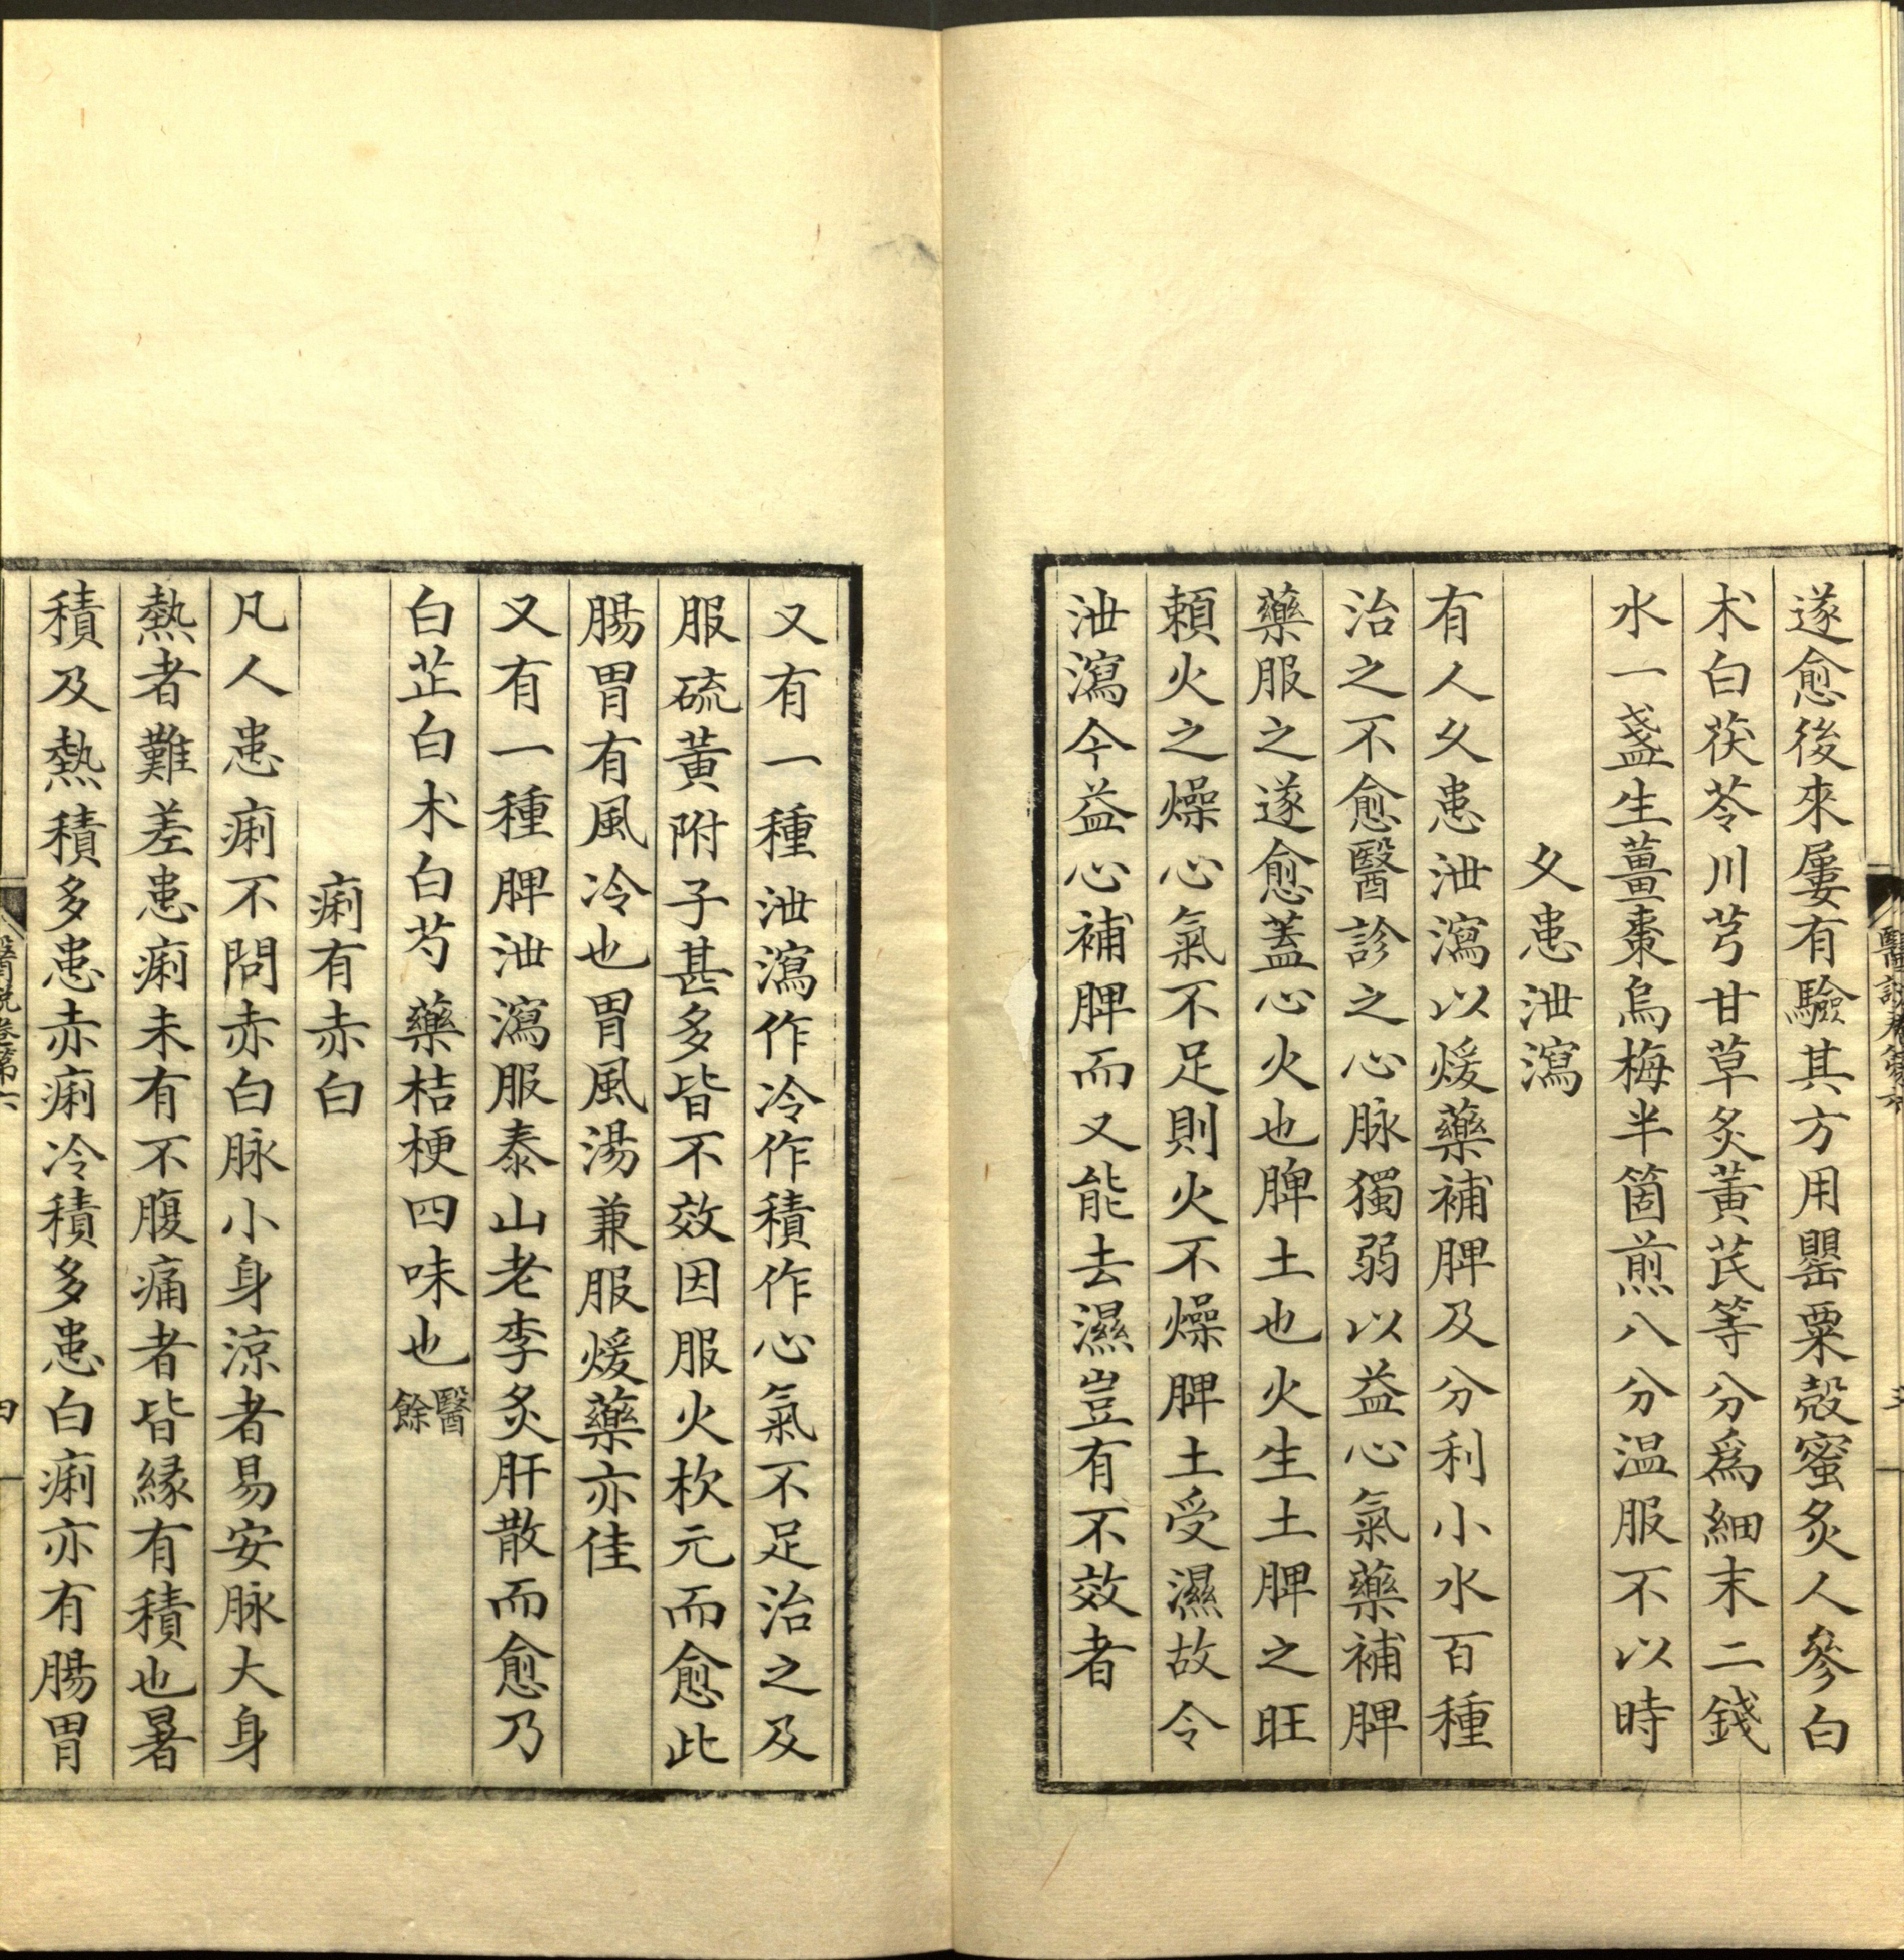 遂愈後來屢有驗其方用罌粟殼蜜炙人參白
朮白茯苓川芎甘草炙黃芪等分爲細末二錢
水一盞生薑棗烏梅半箇煎八分温服不以時
乆患泄瀉
有人乆患泄瀉以煖藥補脾及分利小水百種
治之不愈醫診之心脉獨弱以益心氣藥補脾
藥服之遂愈蓋心火也脾土也火生土脾之旺
頼火之燥心氣不足則火不燥脾土受濕故令
泄瀉今益心補脾而又能去濕豈有不效者
又有一種泄瀉作冷作積作心氣不足治之及
服硫黃附子甚多皆不效因服火杴元而愈此
腸胃有風冷也胃風湯兼服煖藥亦佳
又有一種脾泄瀉服泰山老李炙肝散而愈乃
白芷白朮白芍藥桔梗四味也醫餘
痢有赤白
凡人患痢不問赤白脉小身涼者易安脉大身
熱者難差患痢未有不腹痛者皆縁有積也暑
積及熱積多患赤痢冷積多患白痢亦有腸胃
醫說卷第六